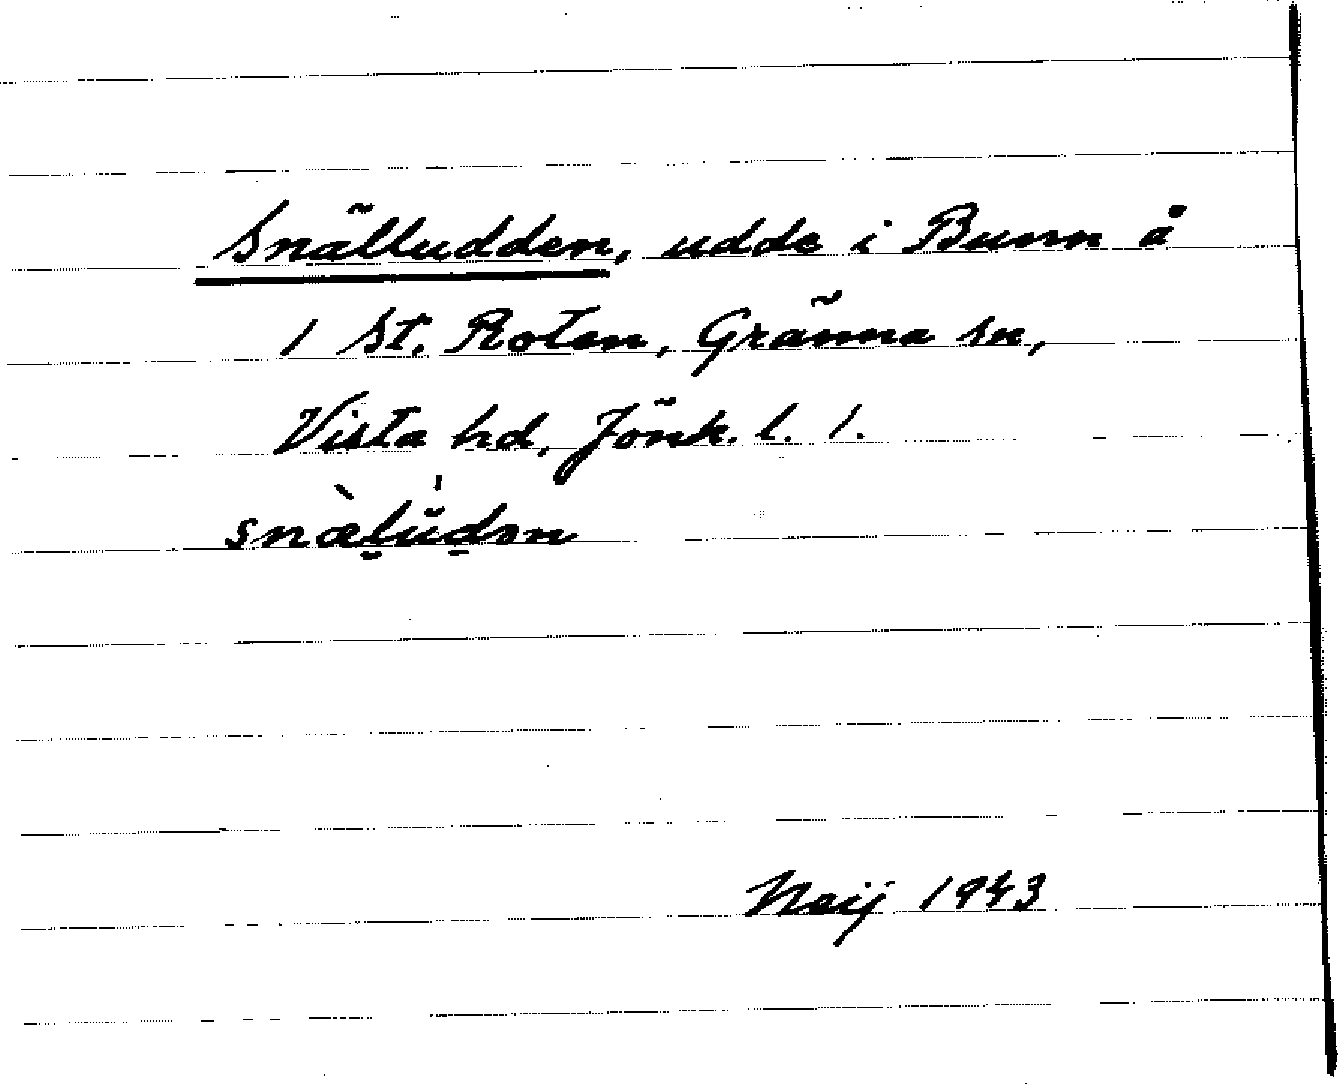 Snälludden, udde i Bunn å
1 St. Roten, Gränna sn,
Vista hd, Jönk. l. 1.
snæ̀lu̍dən
Neij 1943